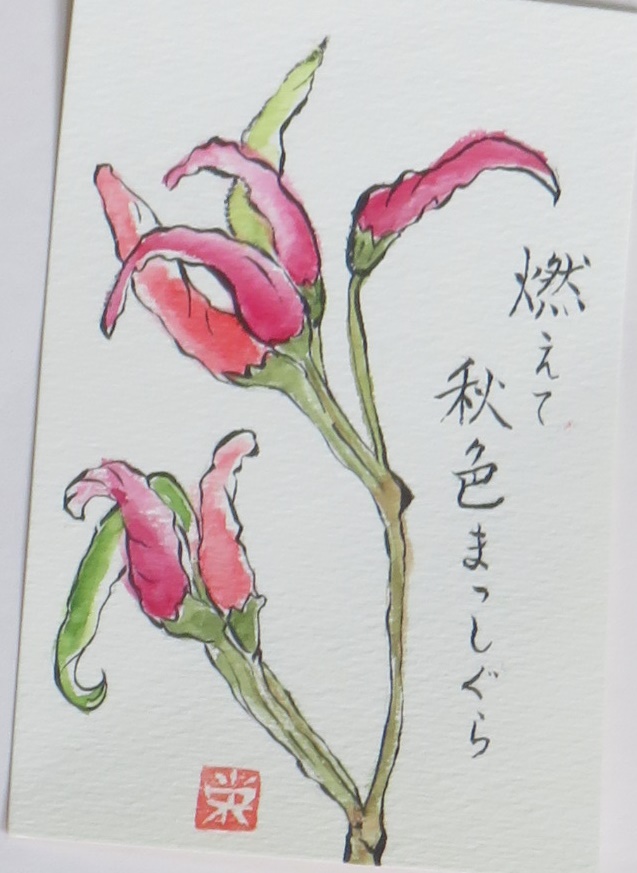 燃えて
秋色まっしぐら
栄